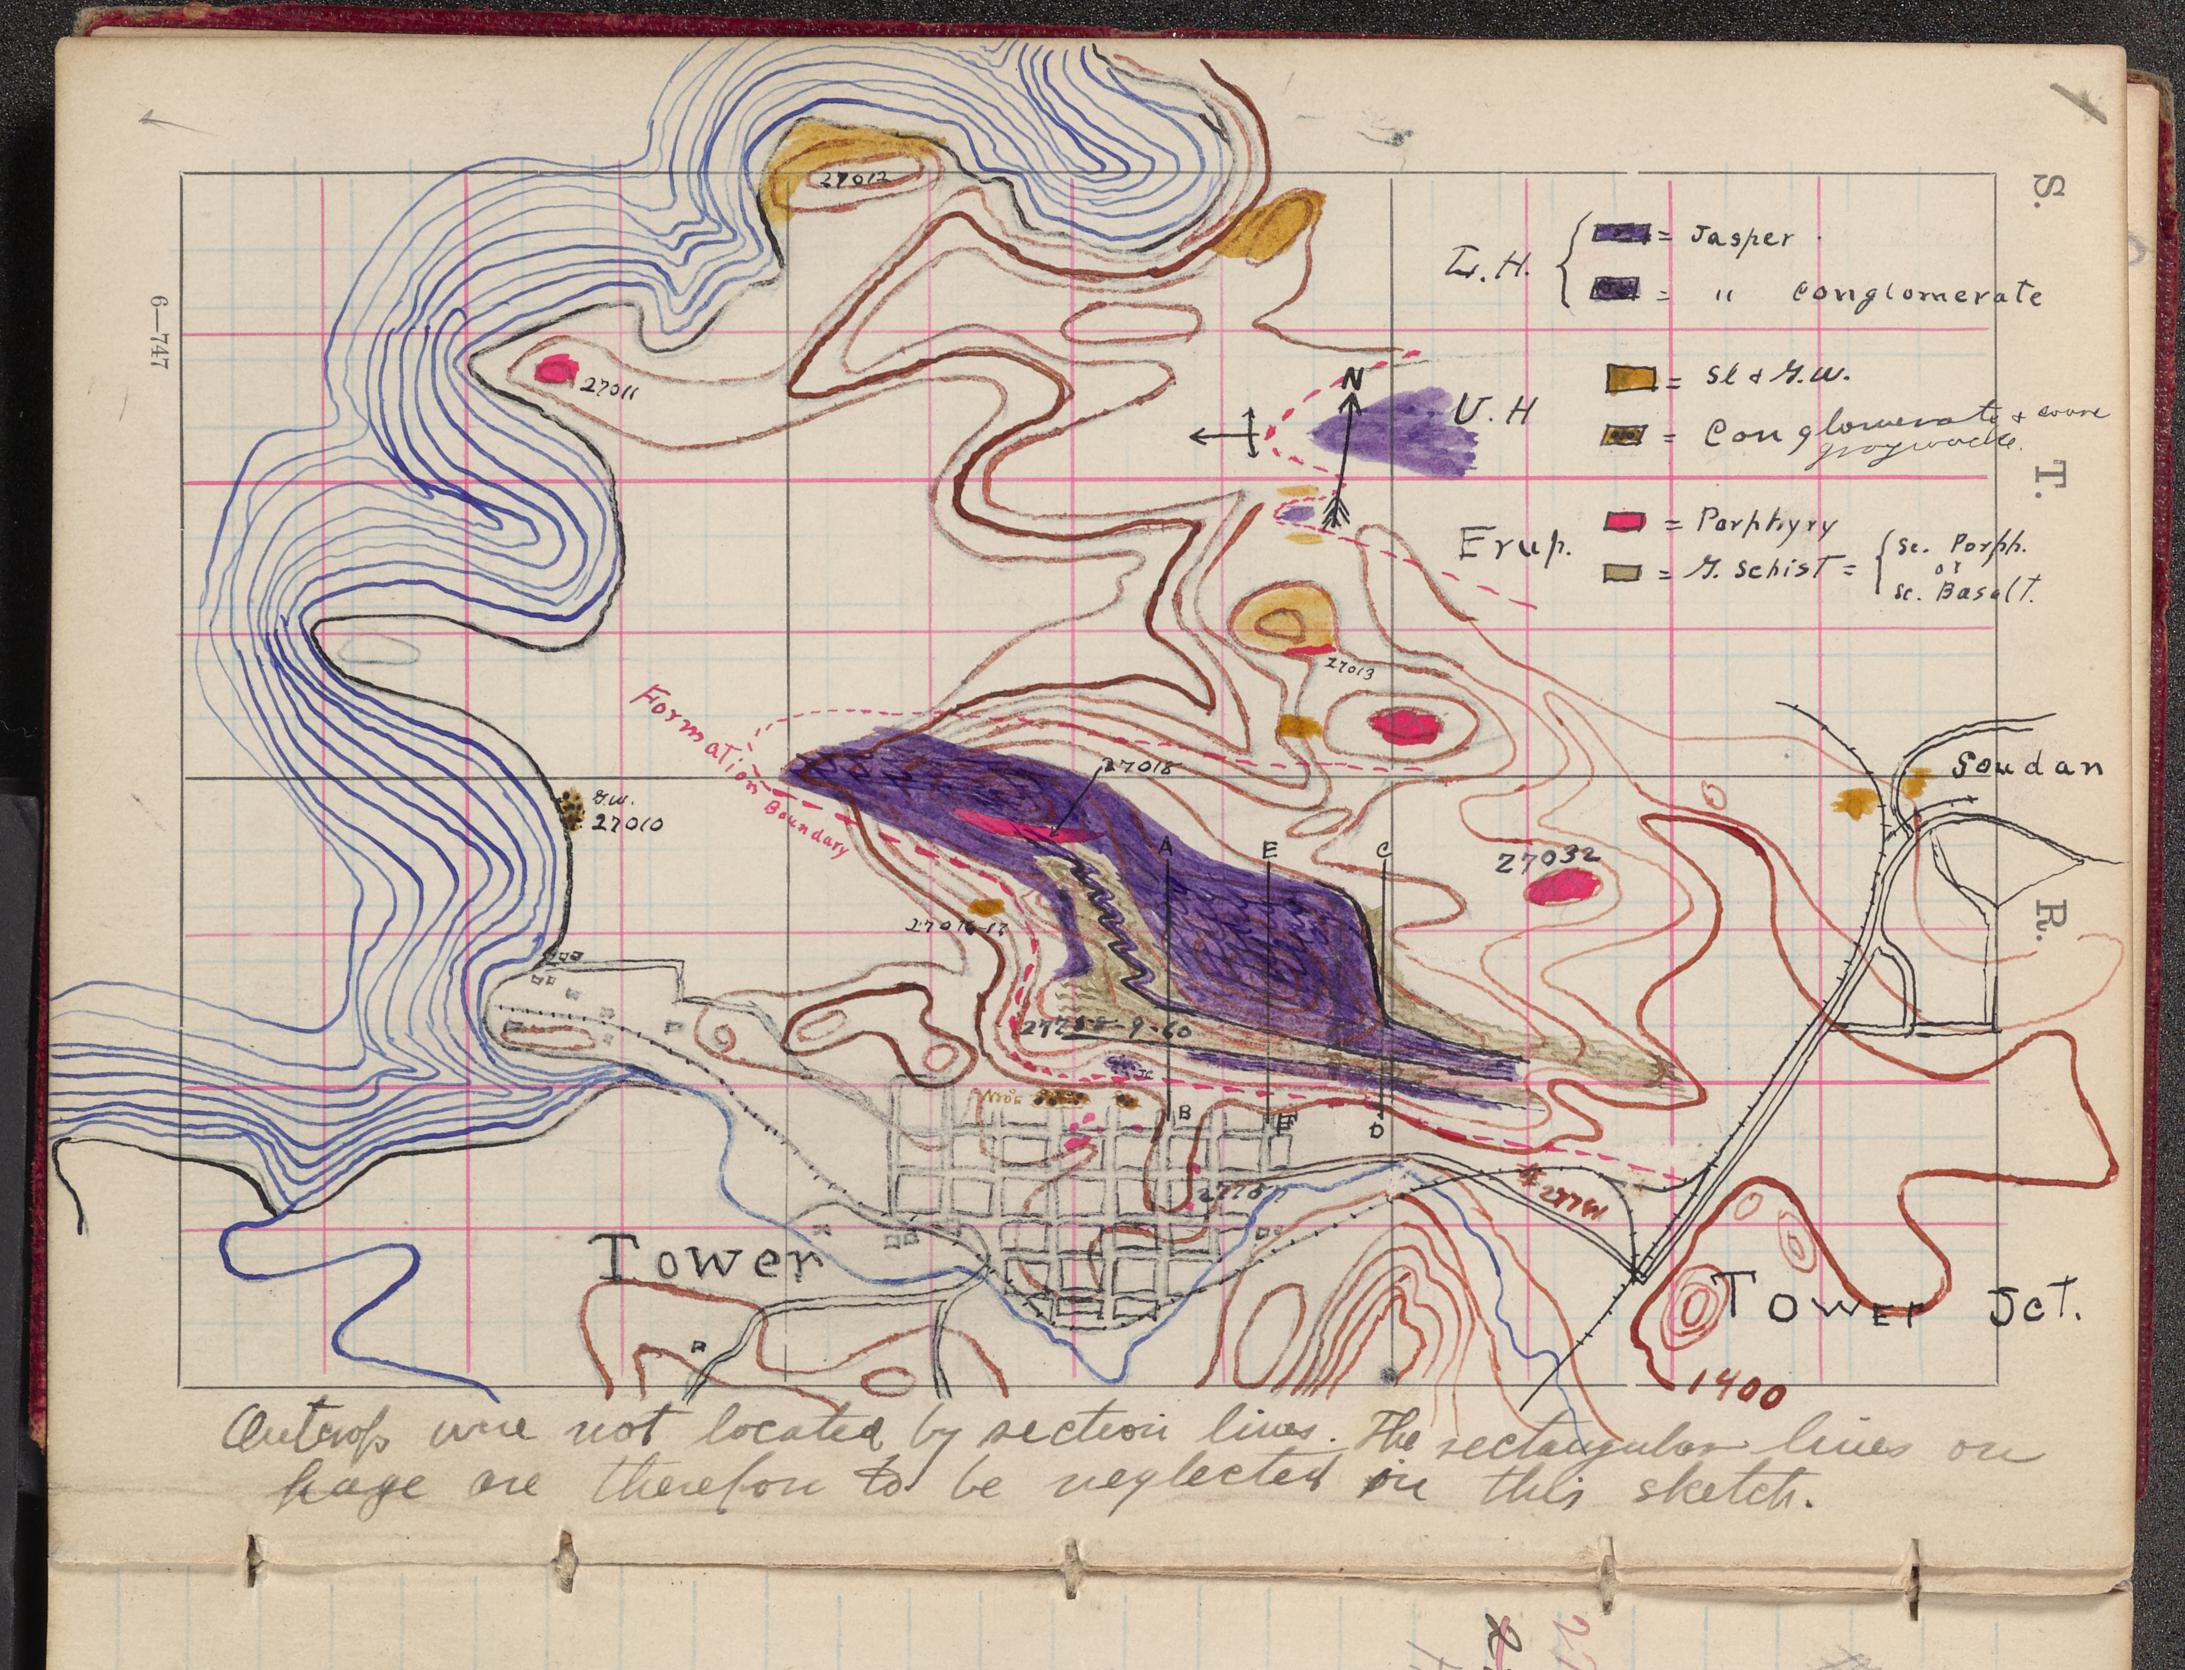 S.
T.
R.
6—747
27012
L.H. { = Jasper
= " conglomerate
27011
N
U.H
= Sl & G.W.
= Conglomerate & coarse
graywacke.
Erup.
= Porphyry
= G. Schist = { Sc. Porph.
or
Sc. Basalt.
27013
Formation Boundary
27018
Soudan
G.W.
27010
A
E
C
27032
27016-17
9-60
B
F
D
Tower
Tower Jct.
1400
Outcrops were not located by section lines. The rectangular lines on
page are therefore to be neglected in this sketch.